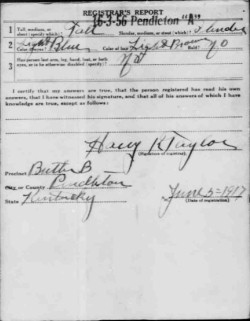 REGISTRAR'S REPORT
16-3-56 Pendleton
1 Tall, medium, or short (specify which)? Tall Slender, medium, or stout (which)? Slender
2 Color of eyes? Light Blue Color of hair? Light Brown Bald? No
3 Has person lost arm, leg, hand, foot, or both eyes, or is he otherwise disabled (specify)? No
I certify that my answers are true, that the person registered has read his own answers, that I have witnessed his signature, and that all of his answers of which I have knowledge are true, except as follows:
Harry K Taylor
(Signature of registrar)
Precinct Butler B
City or County Pendleton
State Kentucky
June 5-1917
(Date of registration)